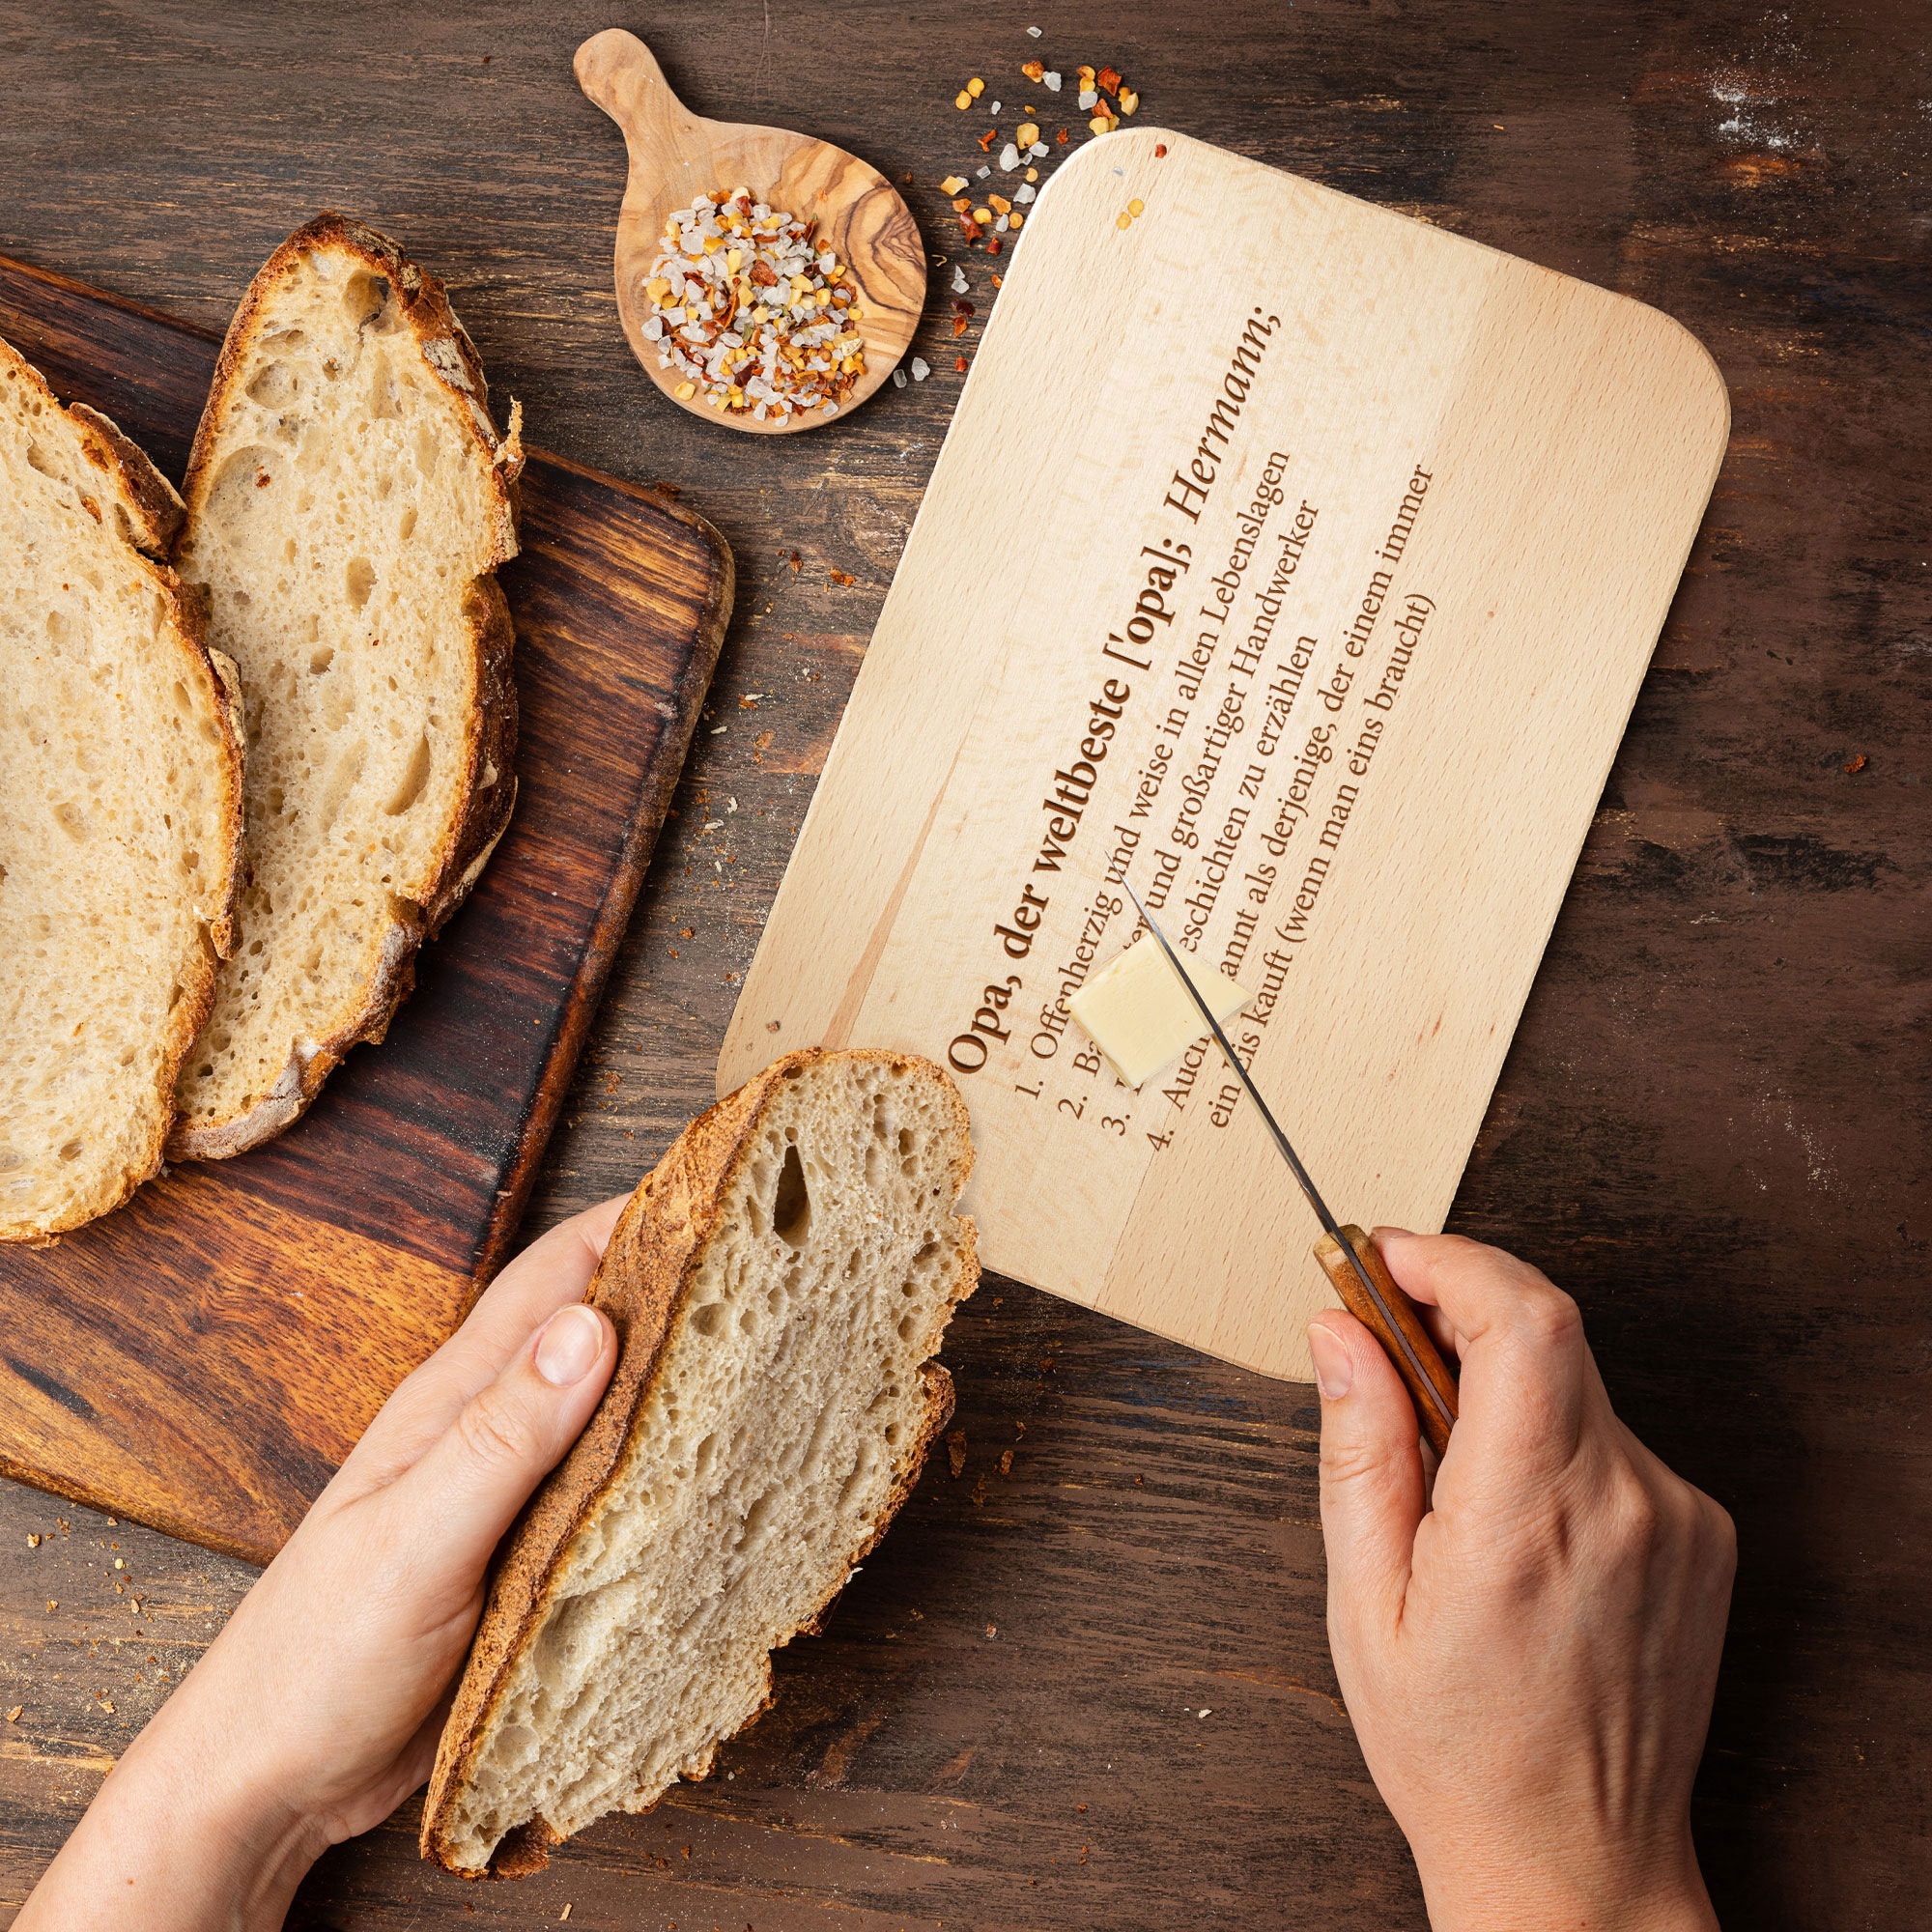 Opa, der weltbeste ['opa]; Hermann;
1. Offenherzig und weise in allen Lebenslagen
2. und großartiger Handwerker
3. zu erzählen
4. Auch als derjenige, der einem immer
ein Eis kauft (wenn man eins braucht)